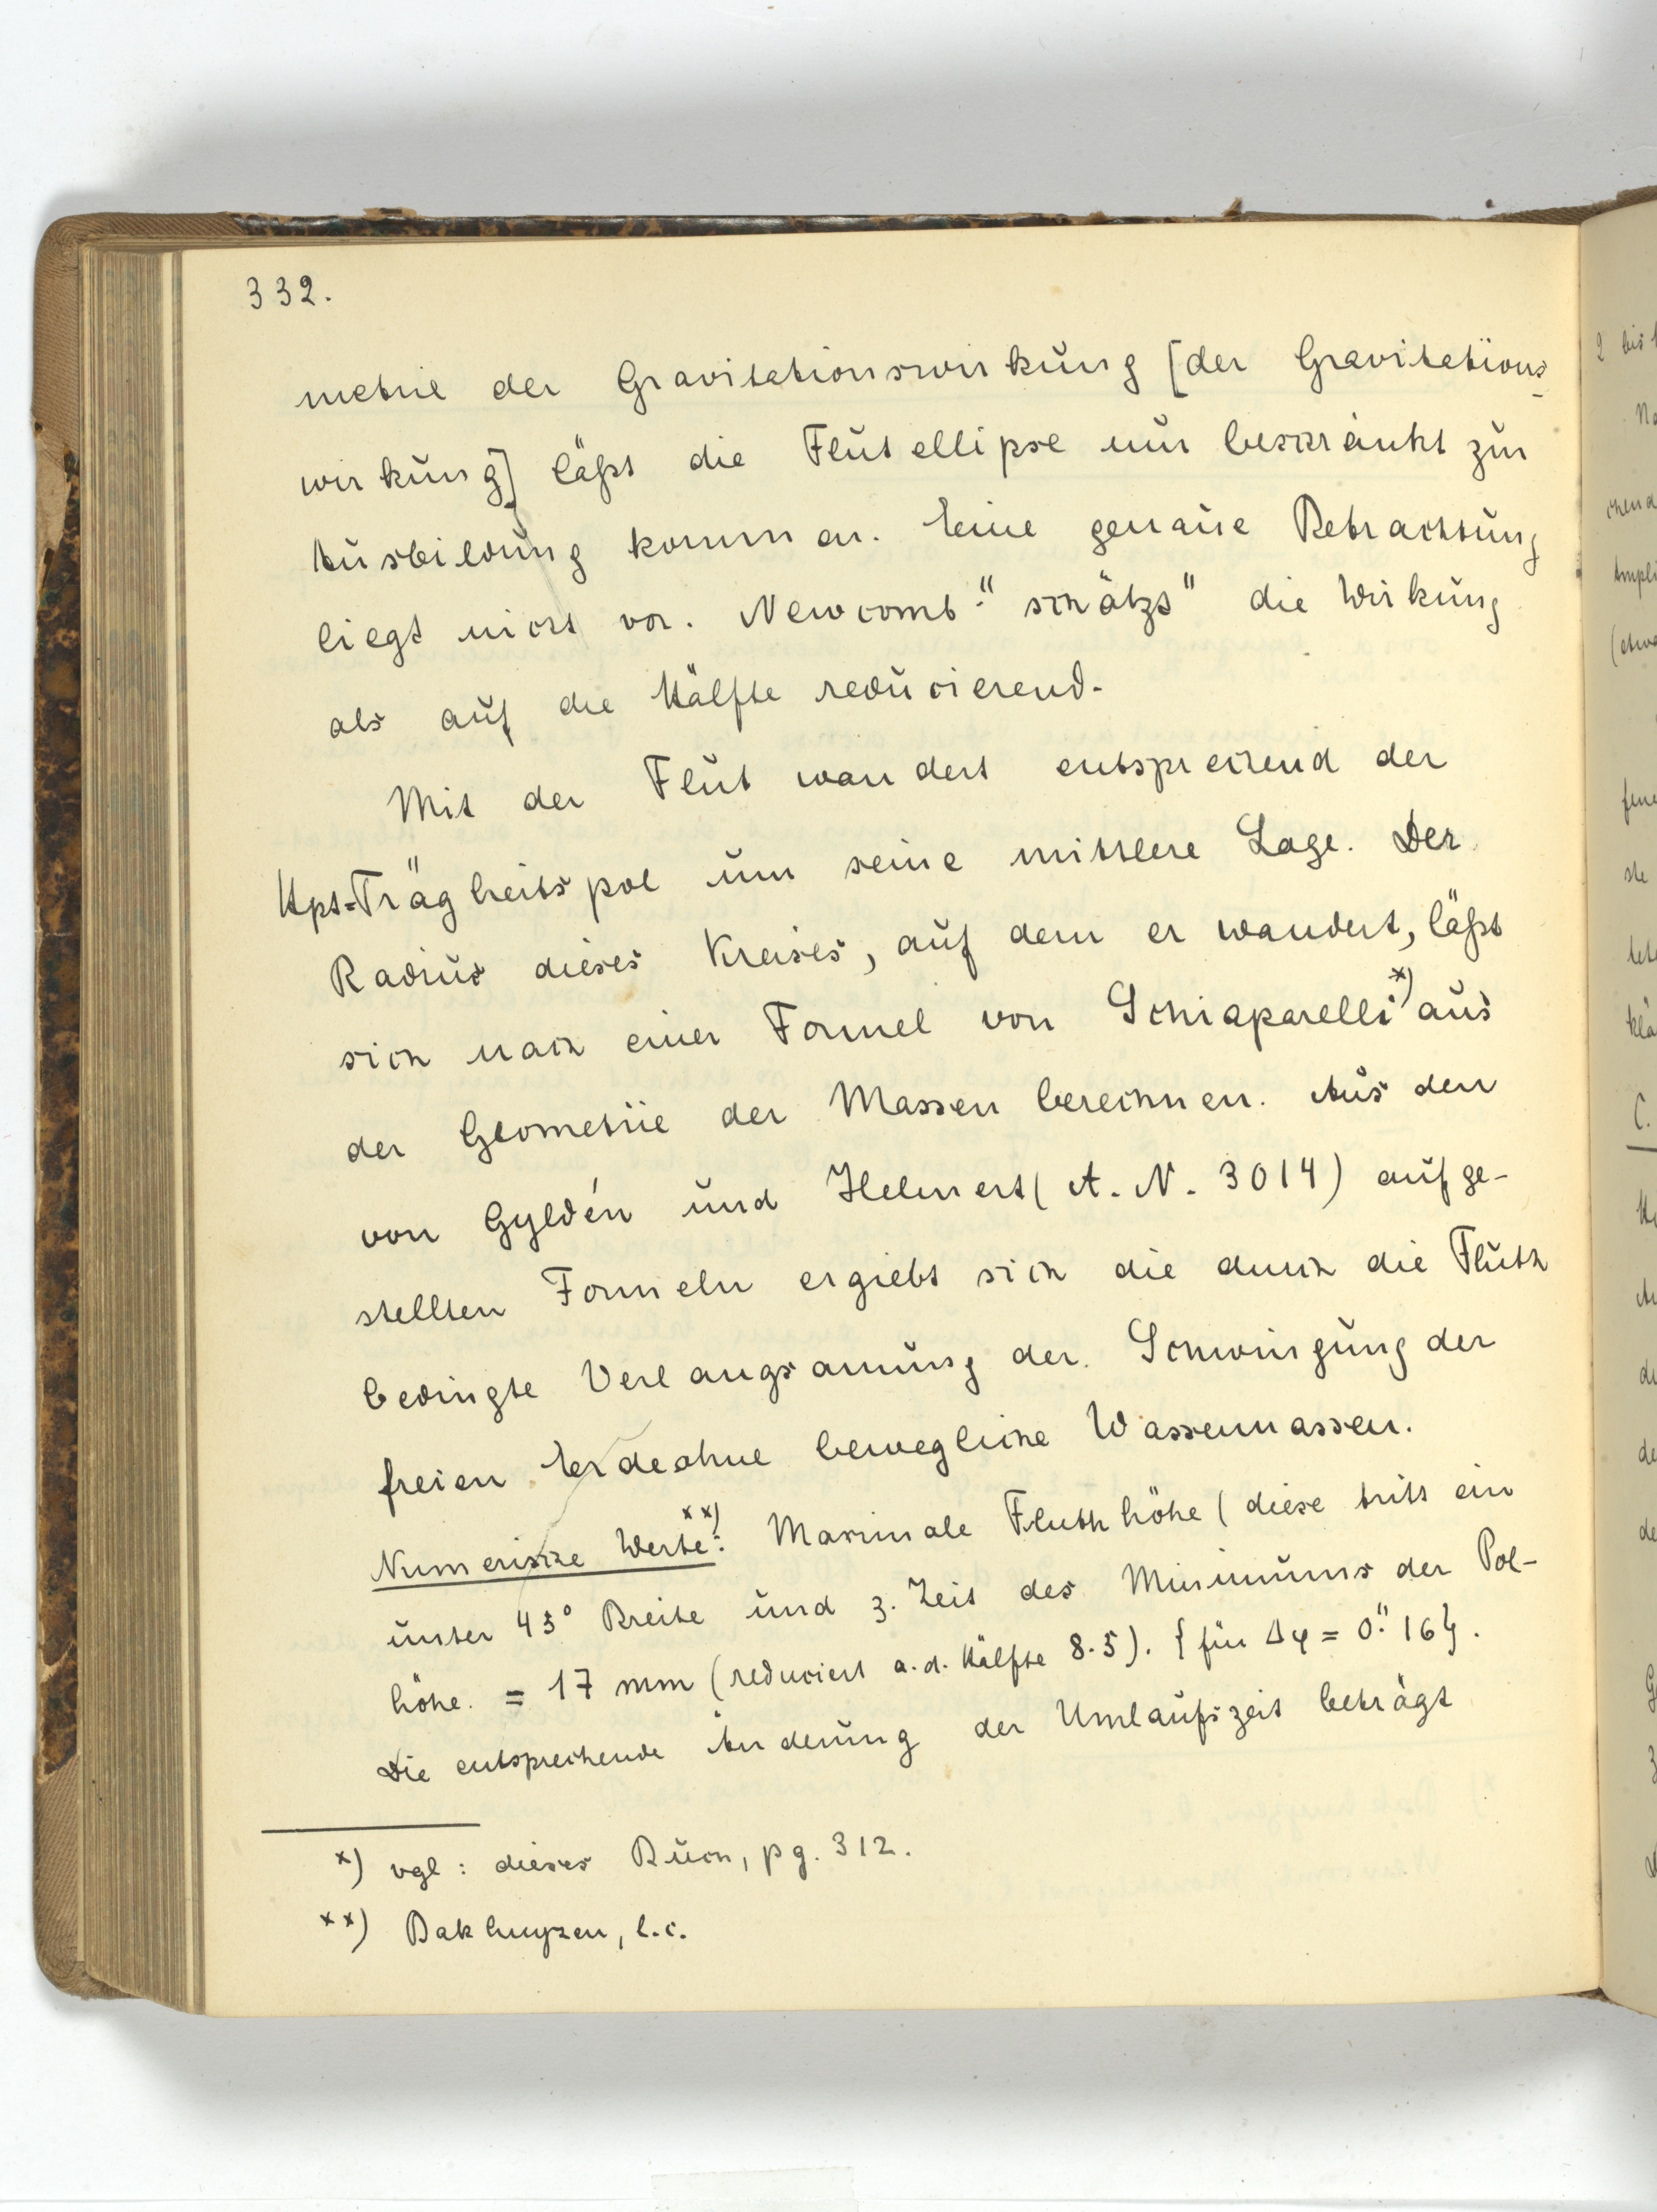 332.
metrie der Gravitationswirkung [der Gravitations-
wirkung] läßt die Flutellipse nur beschränkt zur
Ausbildung kommen. Eine genaue Betrachtung
liegt nicht vor. Newcomb "schätzt" die Wirkung
als auf die Hälfte reducierend.
Mit der Flut wandert entsprechend der
Hpt=Trägheitspol um seine mittlere Lage. Der
Radius dieses Kreises, auf dem er wandert, läßt
sich nach einer Formel von Schiaparelli *) aus
der Geometrie der Massen berechnen. Aus den
von Gyldén und Helmert (A. N. 3014) aufge-
stellten Formeln ergiebt sich die durch die Fluth
bedingte Verlangsamung der Schwingung der
freien Erde ohne bewegliche Wassermassen.
Numerische Werte **): Maximale Fluthhöhe (diese tritt ein
unter 45° Breite und z. Zeit des Minimums der Pol-
höhe. = 17 mm (reduciert a. d. Hälfte 8.5). {für Δφ = 0."16}.
Die entsprechende Änderung der Umlaufszeit beträgt
*) vgl: dieses Buch, pg. 312.
**) Bakhuyzen, l.c.